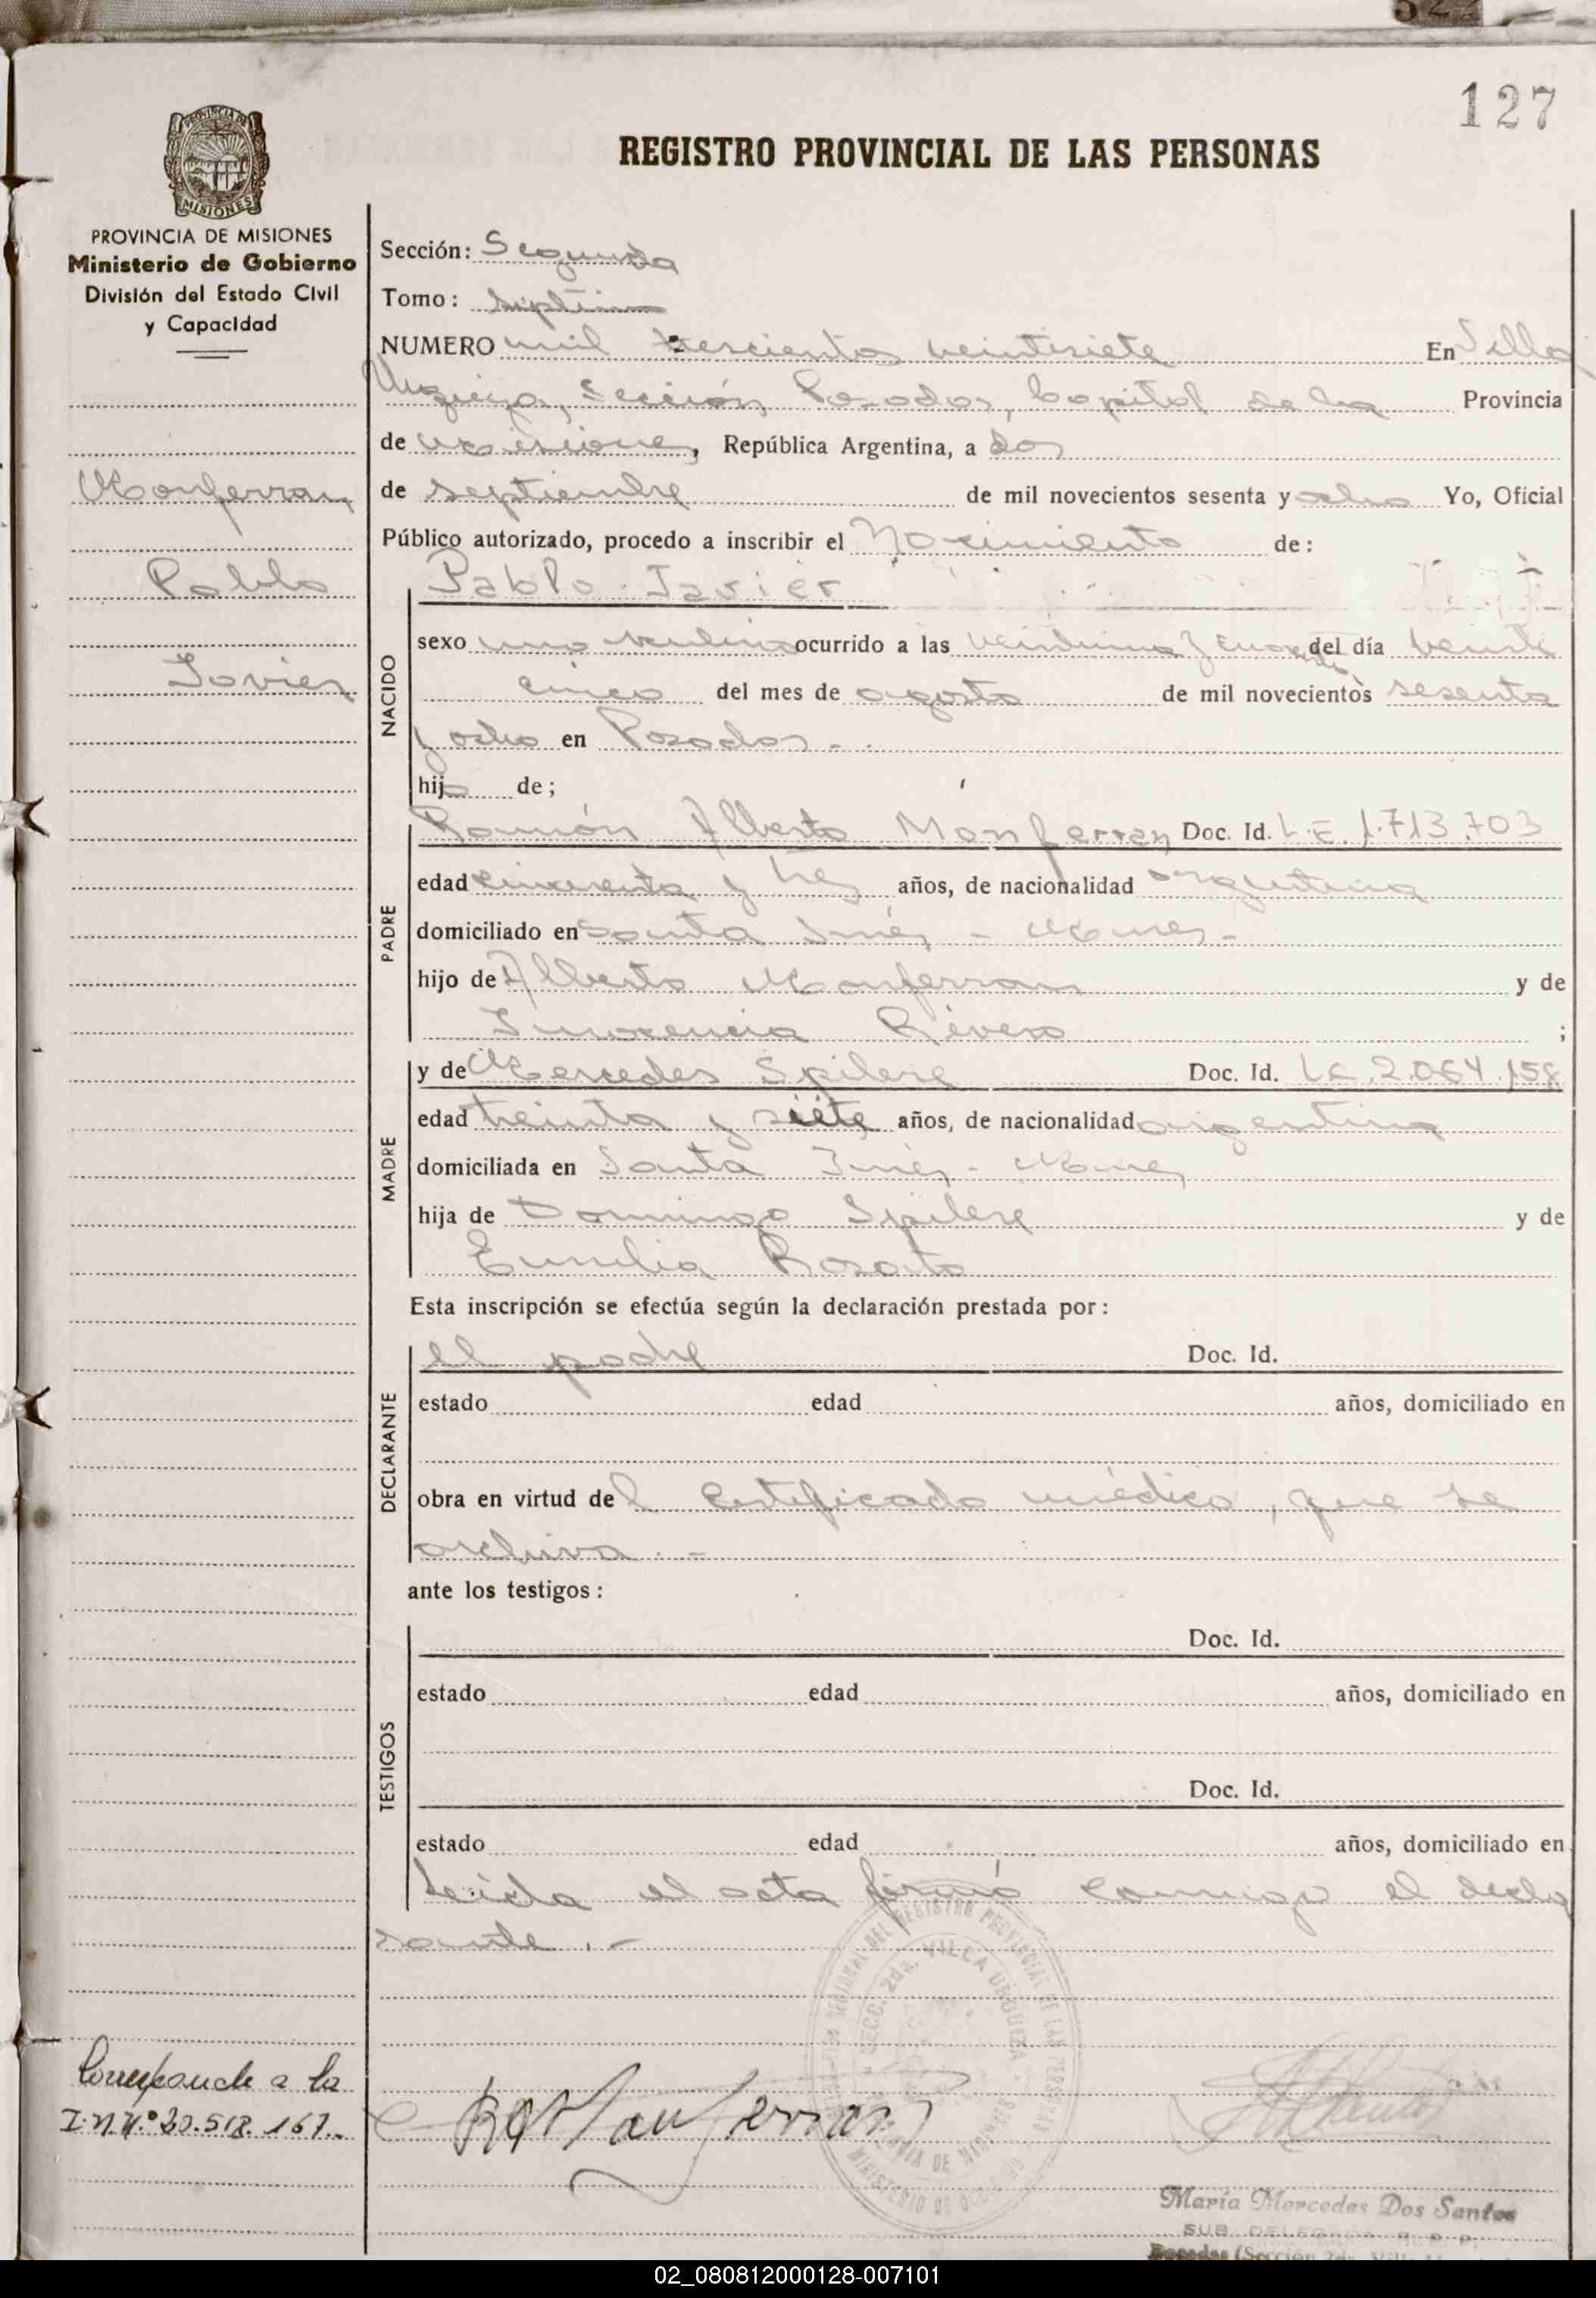 522
127
REGISTRO PROVINCIAL DE LAS PERSONAS
PROVINCIA DE MISIONES
PROVINCIA DE MISIONES
Ministerio de Gobierno
División del Estado Civil
y Capacidad
Monferran
Pablo
Javier
Sección: Segunda
Tomo: Septimo
NUMERO mil trescientos veintisiete En Villa
Urquiza, Sección Posadas, Capital de la Provincia
de Misiones, República Argentina, a dos
de septiembre de mil novecientos sesenta y ocho Yo, Oficial
Público autorizado, procedo a inscribir el Nacimiento de:
NACIDO
Pablo Javier
sexo masculino ocurrido a las veintiuna y cuarenta del día veinti
cinco del mes de agosto de mil novecientos sesenta
y ocho en Posadas.-
hijo de;
PADRE
Ramón Alberto Monferran Doc. Id. L.E. 1.713.703
edad cincuenta y tres años, de nacionalidad argentina
domiciliado en Santa Inés - Mnes-
hijo de Alberto Monferran y de
Inocencia Rivero ;
MADRE
y de Mercedes Spilere Doc. Id. L.C. 2.064.158
edad treinta y siete años, de nacionalidad argentina
domiciliada en Santa Inés - Mnes
hija de Domingo Spilere y de
Emilia Rosato
Esta inscripción se efectúa según la declaración prestada por:
DECLARANTE
el padre Doc. Id.
estado edad años, domiciliado en
obra en virtud del certificado médico, que se
archiva.-
ante los testigos:
TESTIGOS
Doc. Id.
estado edad años, domiciliado en
Doc. Id.
estado edad años, domiciliado en
Leída el acta firmó conmigo el decla
rante.-
REGIONAL DEL REGISTRO PROVINCIAL DE LAS PERSONAS
SECC. 2da. VILLA URQUIZA
PROVINCIA DE MISIONES
MINISTERIO DE
Corresponde a la
I.N.Nº 20.518.167.-
RAMonferran
María Mercedes Dos Santos
SUB DELEGADA R. P. P.
Posadas (Sección 2da. Villa
02_080812000128-007101